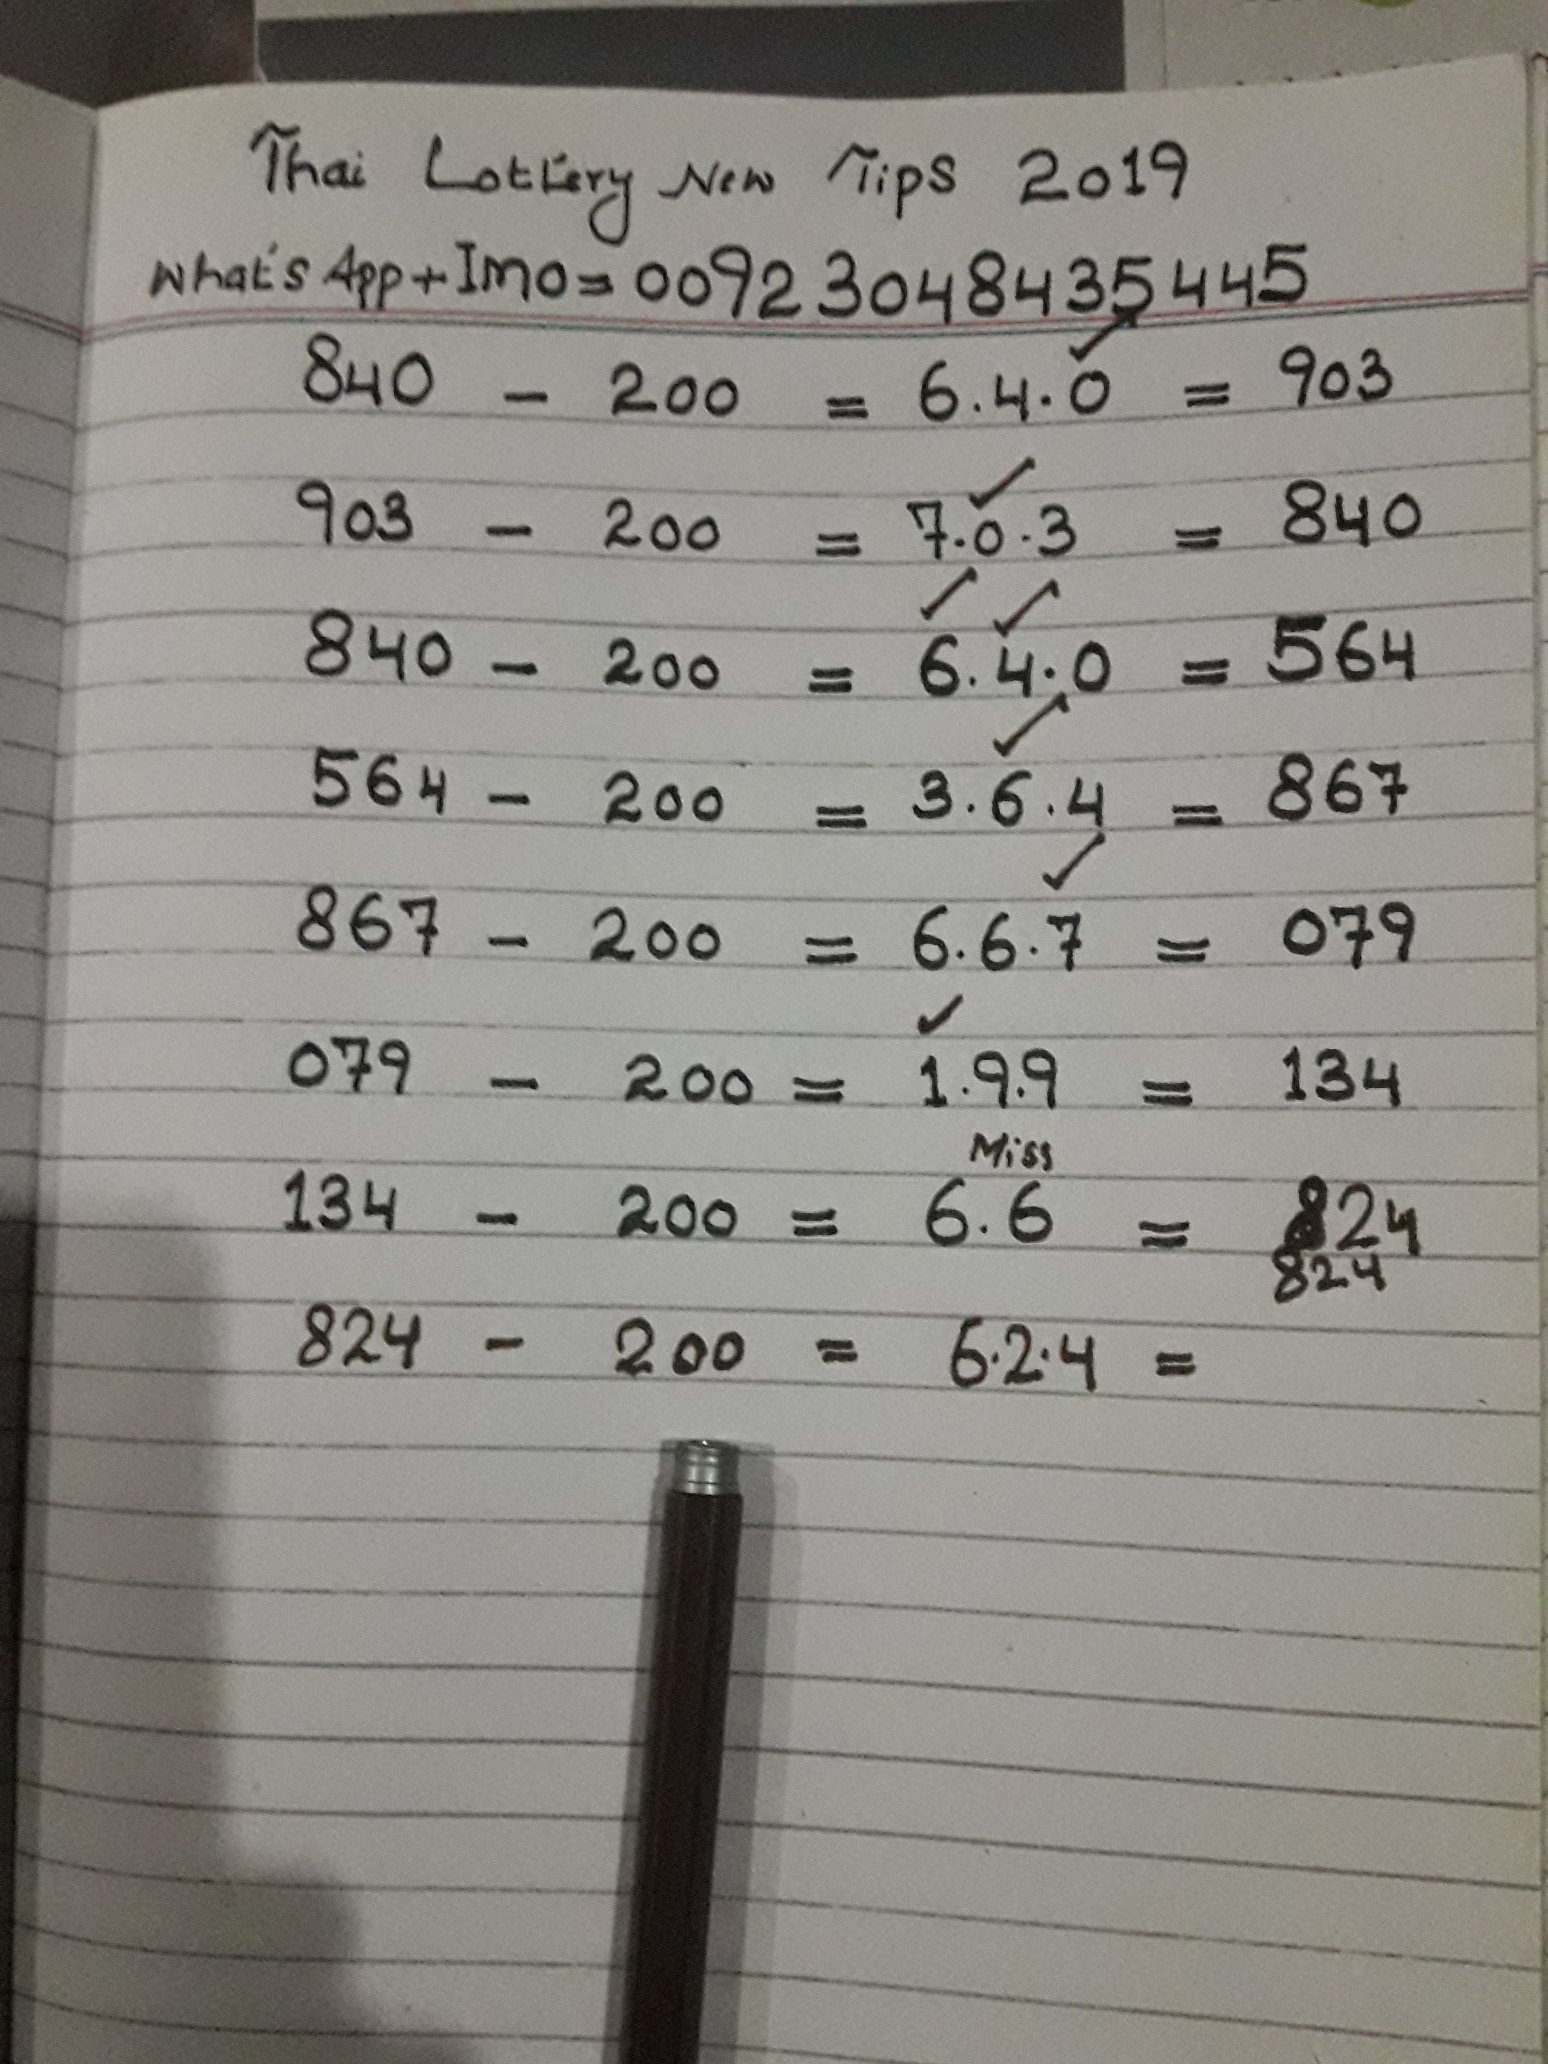 Thai Lottery New Tips 2019
What's App + Imo = 0092 3048435445
840 - 200 = 6.4.0 = 903
903 - 200 = 7.0.3 = 840
840 - 200 = 6.4.0 = 564
564 - 200 = 3.6.4 = 867
867 - 200 = 6.6.7 = 079
079 - 200 = 1.9.9 = 134
Miss
134 - 200 = 6.6 = 824
824
824 - 200 = 6.2.4 =